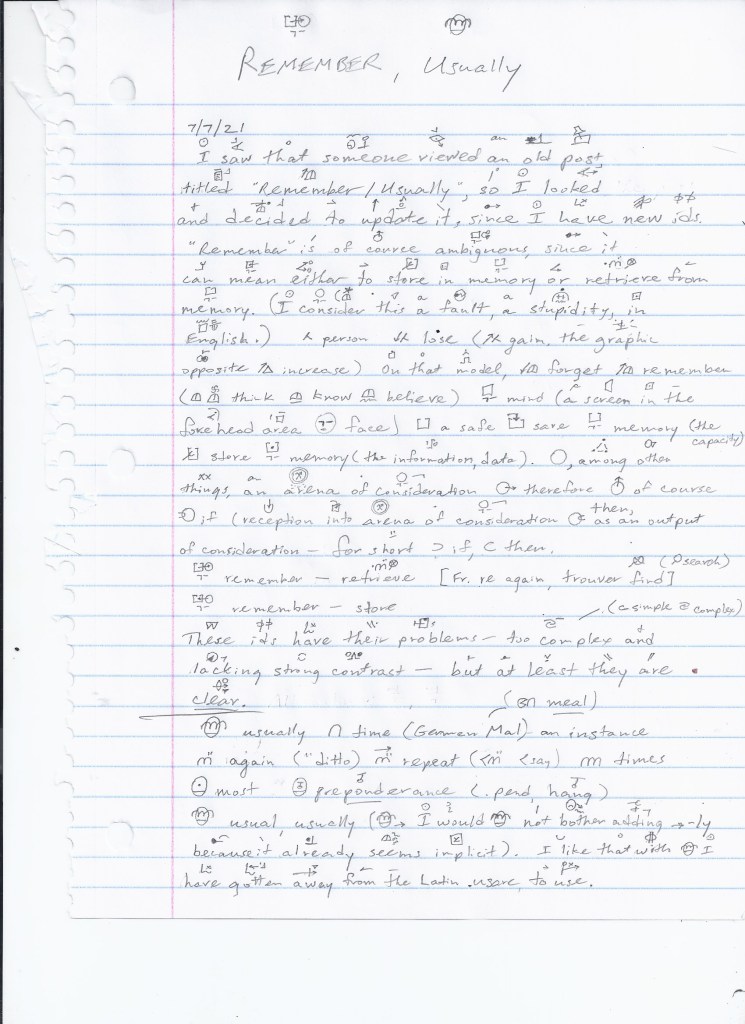 REMEMBER, Usually
7/7/21
I saw that someone viewed an old post
titled "Remember / Usually", so I looked
and decided to update it, since I have new ids.
"Remember" is of course ambiguous, since it
can mean either to store in memory or retrieve from
memory. (I consider this a fault, a stupidity, in
English.) person lose (gain, the graphic
opposite increase) On that model, forget remember
(think know believe) mind (a screen in the
forehead area face) a safe save memory (the capacity)
store memory (the information, data). O, among other
things, an arena of consideration therefore of course
if (reception into arena of consideration then, as an output
of consideration – for short ⊃ if, ⊂ then.
remember – retrieve [Fr. re again, trouver find] (search)
remember – store
(simple complex)
These ids have their problems – too complex and
lacking strong contrast – but at least they are
clear. (meal)
usually ∩ time (German Mal) an instance
again ("ditto) repeat (< say) m times
most preponderance (. pend, hang)
usual, usually (I would not bother adding -ly
because it already seems implicit). I like that with I
have gotten away from the Latin .usare, to use.